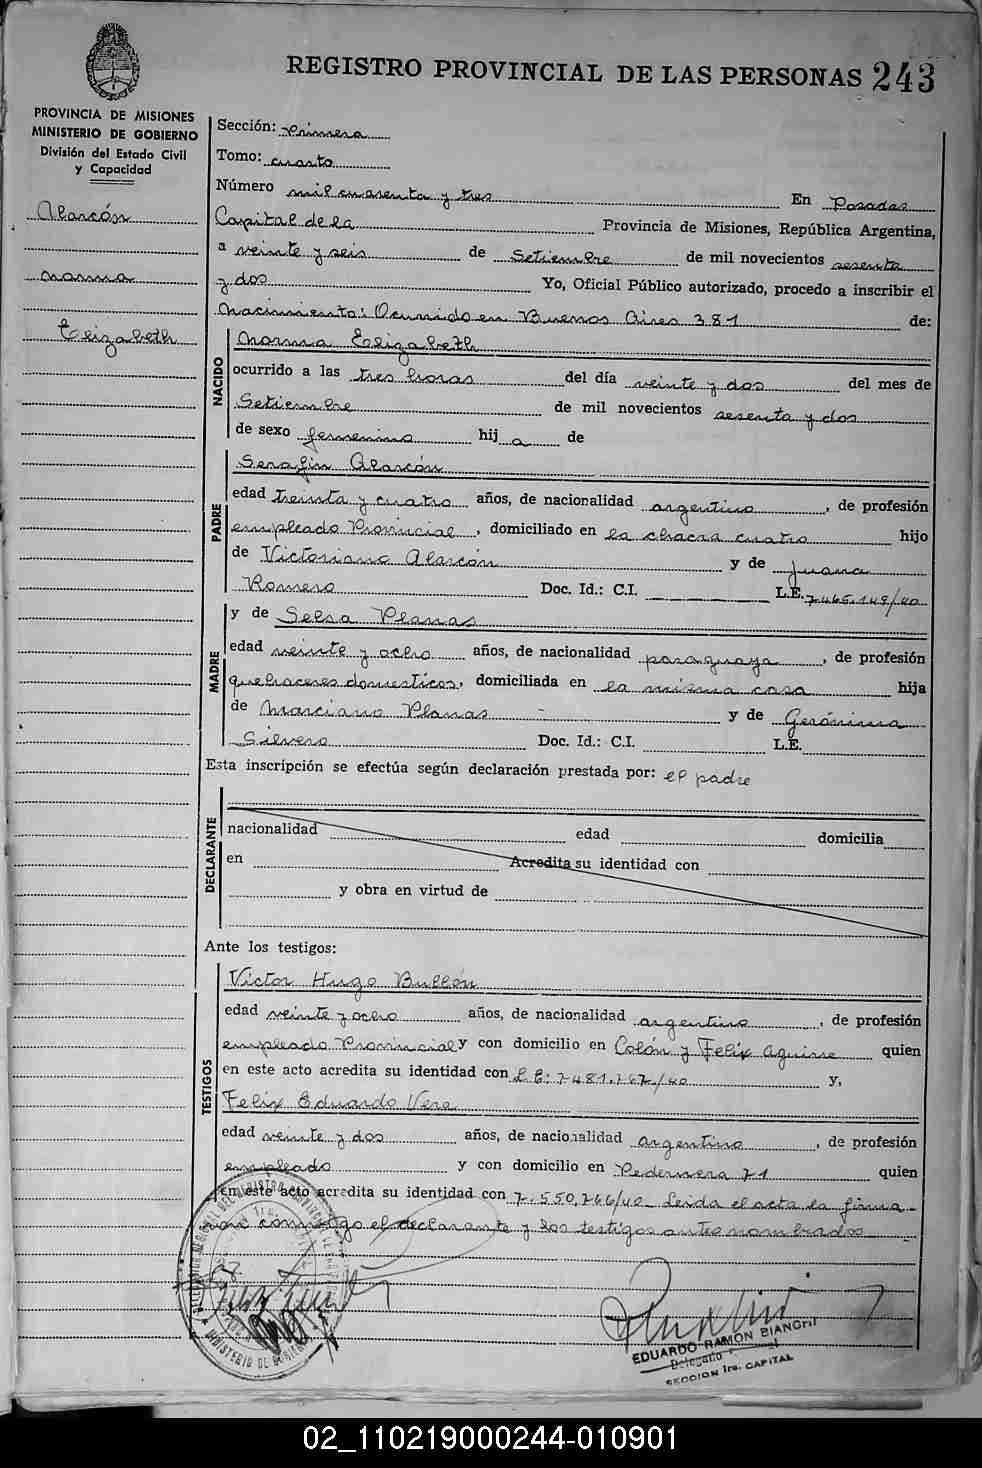 REGISTRO PROVINCIAL DE LAS PERSONAS 243
PROVINCIA DE MISIONES
MINISTERIO DE GOBIERNO
División del Estado Civil
y Capacidad
Alarcón
Norma
Elizabeth
Sección: Primera
Tomo: cuarto
Número mil cuarenta y tres En Posadas
Capital de la Provincia de Misiones, República Argentina,
a veinte y seis de Setiembre de mil novecientos sesenta
y dos Yo, Oficial Público autorizado, procedo a inscribir el
Nacimiento: Ocurrido en Buenos Aires 381 de:
NACIDO
Norma Elizabeth
ocurrido a las tres horas del día veinte y dos del mes de
Setiembre de mil novecientos sesenta y dos
de sexo femenino hij a de
PADRE
Serafín Alarcón
edad treinta y cuatro años, de nacionalidad argentino, de profesión
empleado Provincial, domiciliado en la chacra cuatro hijo
de Victoriano Alarcón y de Juana
Romero Doc. Id.: C.I. L.E. 7.465.149/40
MADRE
y de Selva Planas
edad veinte y ocho años, de nacionalidad paraguaya, de profesión
quehaceres domesticos, domiciliada en la misma casa hija
de Marciano Planas y de Gerónima
Silvero Doc. Id.: C.I. L.E.
Esta inscripción se efectúa según declaración prestada por: el padre
DECLARANTE
nacionalidad edad domicilia
en Acredita su identidad con
y obra en virtud de
Ante los testigos:
TESTIGOS
Victor Hugo Bullón
edad veinte y ocho años, de nacionalidad argentino, de profesión
empleado Provincial y con domicilio en Colón y Felix Aguirre quien
en este acto acredita su identidad con L E: 7481.767/40 y,
Felix Eduardo Vera
edad veinte y dos años, de nacionalidad argentino, de profesión
empleado y con domicilio en Pedernera 71 quien
en este acto acredita su identidad con 7.550.766/40 Leida el acta la firma
ron conmigo el declarante y los testigos antes nombrados
EDUARDO RAMON BIANCHI
Delegado
SECCION 1ra. CAPITAL
02_110219000244-010901